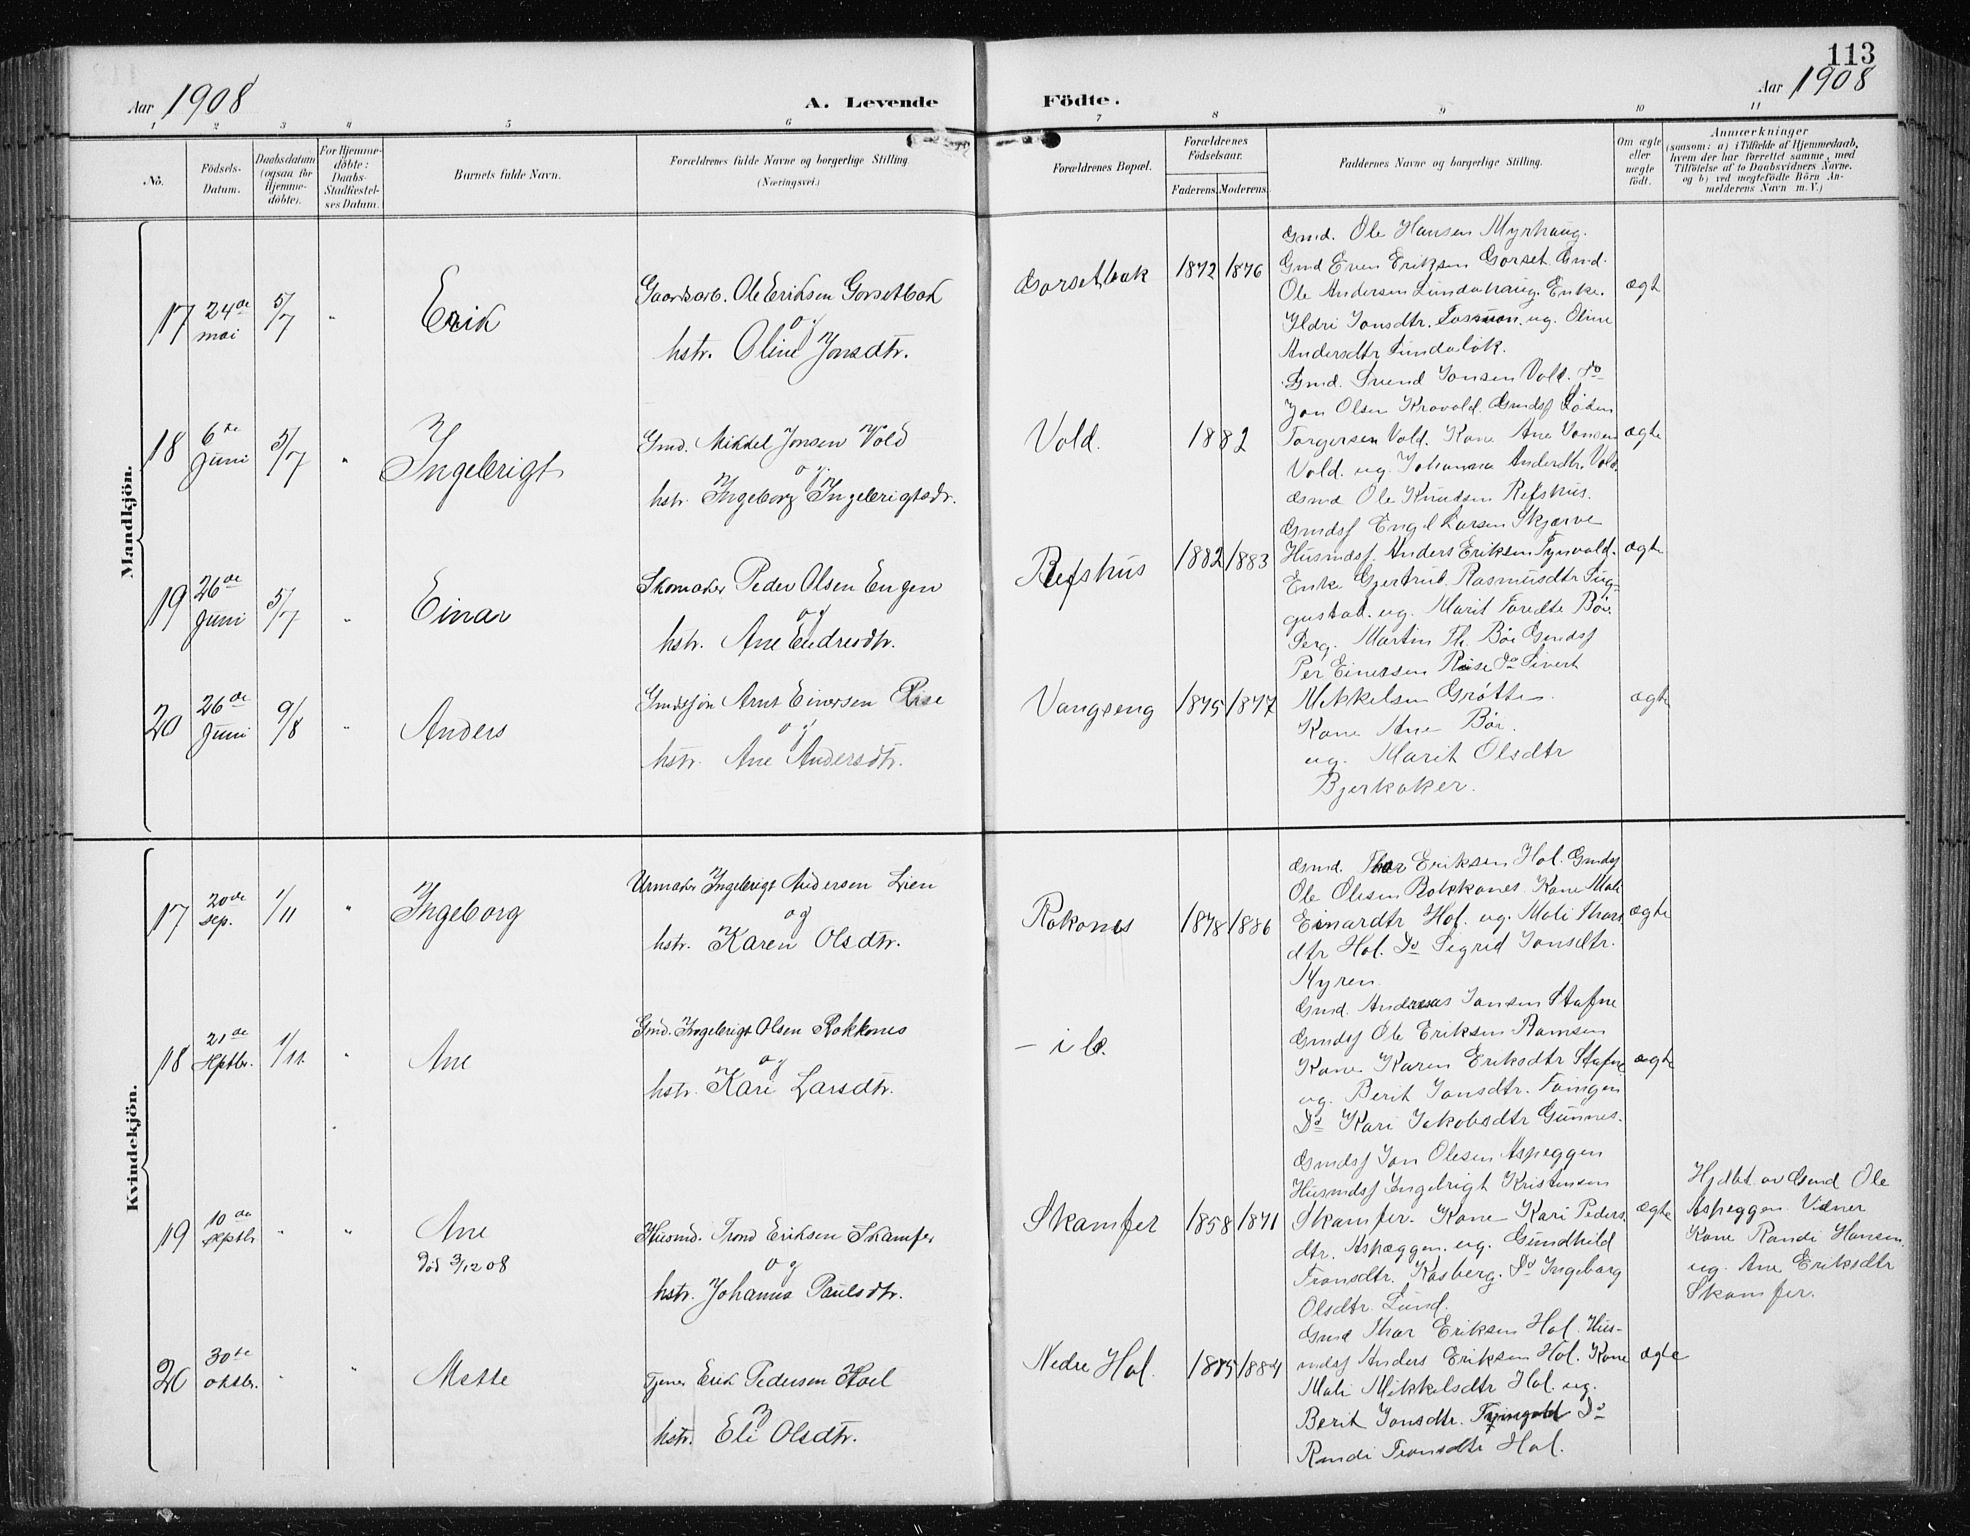 113
Aar 1908
A. Levende
Födte.
Aar 1908
1 2 3 4 5 6 7 8 9 10 11
No.
Födsels-
Datum.
Daabsdatum
(ogsaa for
Hjemme-
döbte).
For Hjemme-
döbte:
Daabs-
Stadfestel-
ses Datum.
Barnets fulde Navn.
Forældrenes fulde Navne og borgerlige Stilling
(Næringsvei.)
Forældrenes Bopæl.
Forældrenes
Födselsaar.
Faderens.
Moderens.
Faddernes Navne og borgerlige Stilling.
Om ægte
eller
uægte
födt.
Anmærkninger
(saasom: a) i Tilfælde af Hjemmedaab,
hvem der har forrettet samme, med
Tilföielse af to Daabsvidners Navne.
og b) ved uegtefödte Börn An-
melderens Navn m. V.)
Mandkjön.
17
24de
mai
5/7
"
Erik
Gaardsarb. Ole Eriksen Gorsetbak
og
hstr. Oline Jonsdtr.
Gorsetbak
1872
1876
Gmd. Ole Hansen Myrhaug.
Gmd Even Eriksen Gorset. Gmd.
Ole Andersen Lundahaug. Enke.
Ildri Jonsdtr. ug. Oline
Andersdtr Lundabök.
ægt
18
6te
Juni
5/7
"
Ingebrigt
Gmd. Mikkel Jonsen Vold
og
hstr. Ingeborg Ingebrigtsdtr.
Vold.
1882
Gmd. Svend Jonsen Vold. Do
Jon Olsen Krovold. Gmdsf
Torgersen Vold. Kone Ane Jonsen
Vold. ug. Johanna Andersdtr. Vold.
ægte
19
26de
Juni
5/7
"
Einar
Skomaker Peder Olsen Engen
og
hstr. Ane Endresdtr.
Refshus
1882
1883
Gmd Ole Knudsen Refshus.
Gmdsf Engel Larsen Skjærve
Husmdsf. Anders Eriksen Tynvold.
Enke Gjertrud Rasmusdtr Sug-
gustad. ug. Marit Böe
ægte
20
26de
Juni
9/8
"
Anders
Gmdssön Arnt Einersen Rise
og
hstr. Ane Andersdtr.
Vangseng
1875
1877
Serg. Martin Th. Böe Gmdsf
Per Einersen Rise Do Sivert
Mikkelsen Grötte
Kone Ane Böe.
ug. Marit Olsdtr
Bjerkaker.
ægte
Kvindekjön.
17
20de
sep.
1/11
"
Ingeborg
Urmaker Ingebrigt Andersen Lien
og
hstr. Karen Olsdtr.
Rokones
1878
1886
Gmd. Thor Eriksen Hol. Gmdsf
Ole Olesen Rokkones Kone Mali
Einardtr Hol. ug. Mali Thors
dtr Hol. Do Sigrid Jonsdtr.
Myren.
ægte
18
21de
Septbr.
1/11
"
Ane
Gmd. Ingebrigt Olsen Rokkones
og
hstr. Kari Larsdtr.
- i b.
Gmd. Andreas Jonsen Stafne
Gmdsf Ole Eriksen Ramsen
Kone Karen Eriksdtr Stafne
ug. Berit Jonsdtr.
Do Kari Jakobsdtr Gunnes.
ægte
19
10de
Septbr
"
"
Ane
Död 3/12 08
Husmd. Trond Eriksen Skamfer
og
hstr. Johanna Paulsdtr.
Skamfer
1858
1871
Gmdsf Jon Olesen Aspeggen
Husmdsf Ingebrigt Kristensen
Skamfer. Kone Kari Peders
dtr. Aspeggen. ug. Gundhild
Tronsdtr. Kosberg. Do Ingeborg
Olsdtr. Lund.
ægte
Hjdbt. av Gmd Ole
Aspeggen. Vidner
Kone Randi Hansen
ug. Ane Eriksdtr
Skamfer.
20
30te
oktbr.
"
"
Mette
Tjener Erik Pedersen Hoel
og
hstr. Eli Olsdtr.
Nedre Hol.
1875
1884
Gmd Thor Eriksen Hol. Hus-
mdsf Anders Eriksen Hol. Kone
Mali Mikkelsdtr Hol. ug.
Berit Jonsdtr. Do
Randi Tronsdtr Hol.
ægte